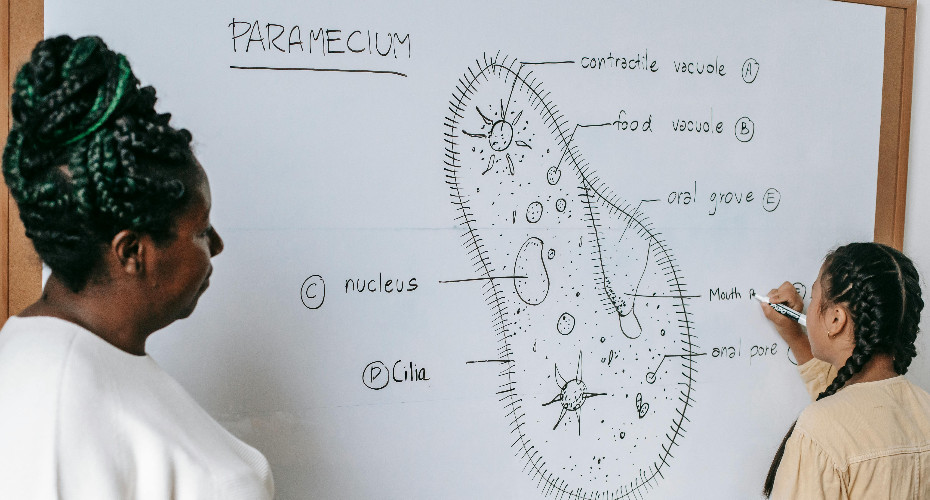 PARAMECIUM
contractile vacuole (A)
food vacuole (B)
oral grove (E)
(C) nucleus
Mouth
anal pore
(D) Cilia